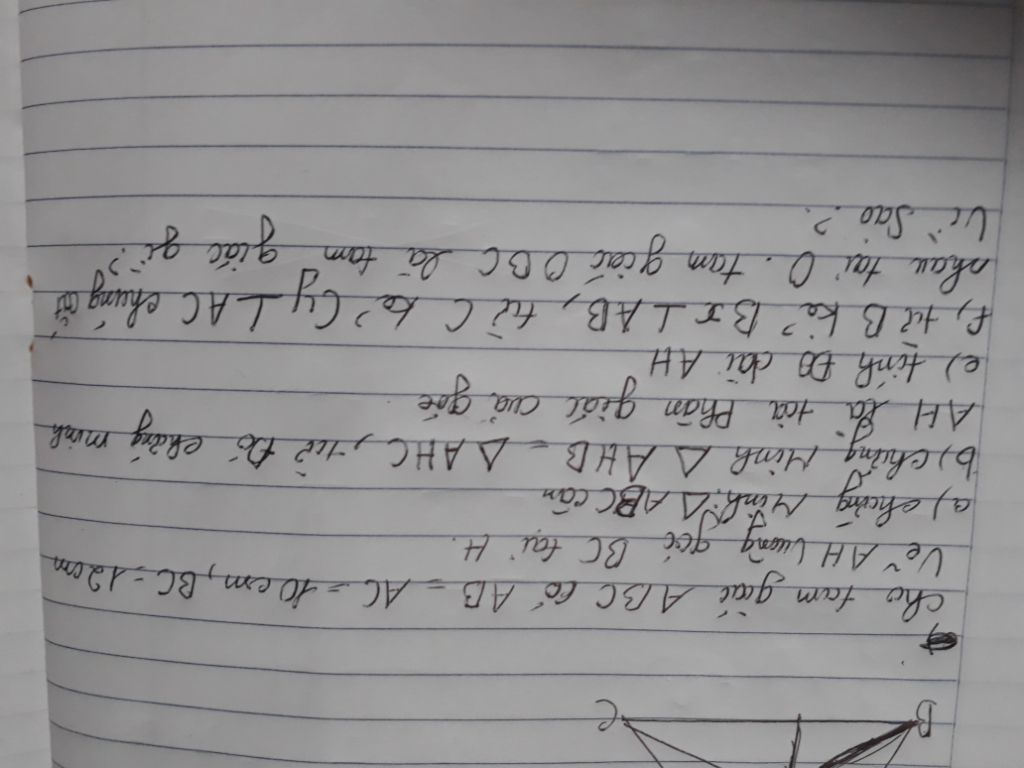 B C
cho tam giác ABC có AB = AC = 10 cm, BC = 12 cm
Vẽ AH Vuông góc BC tại H.
a) chứng Minh: Δ ABC cân
b) chứng Minh Δ AHB = Δ AHC, từ Đó chứng minh
AH là tia Phân giác của góc
e) tính ĐỘ dài AH
f, từ B kẻ Bx ⊥ AB, từ C kẻ Cy ⊥ AC chúng cắt
nhau tại O. tam giác OBC là tam giác gì?
Vì Sao?.